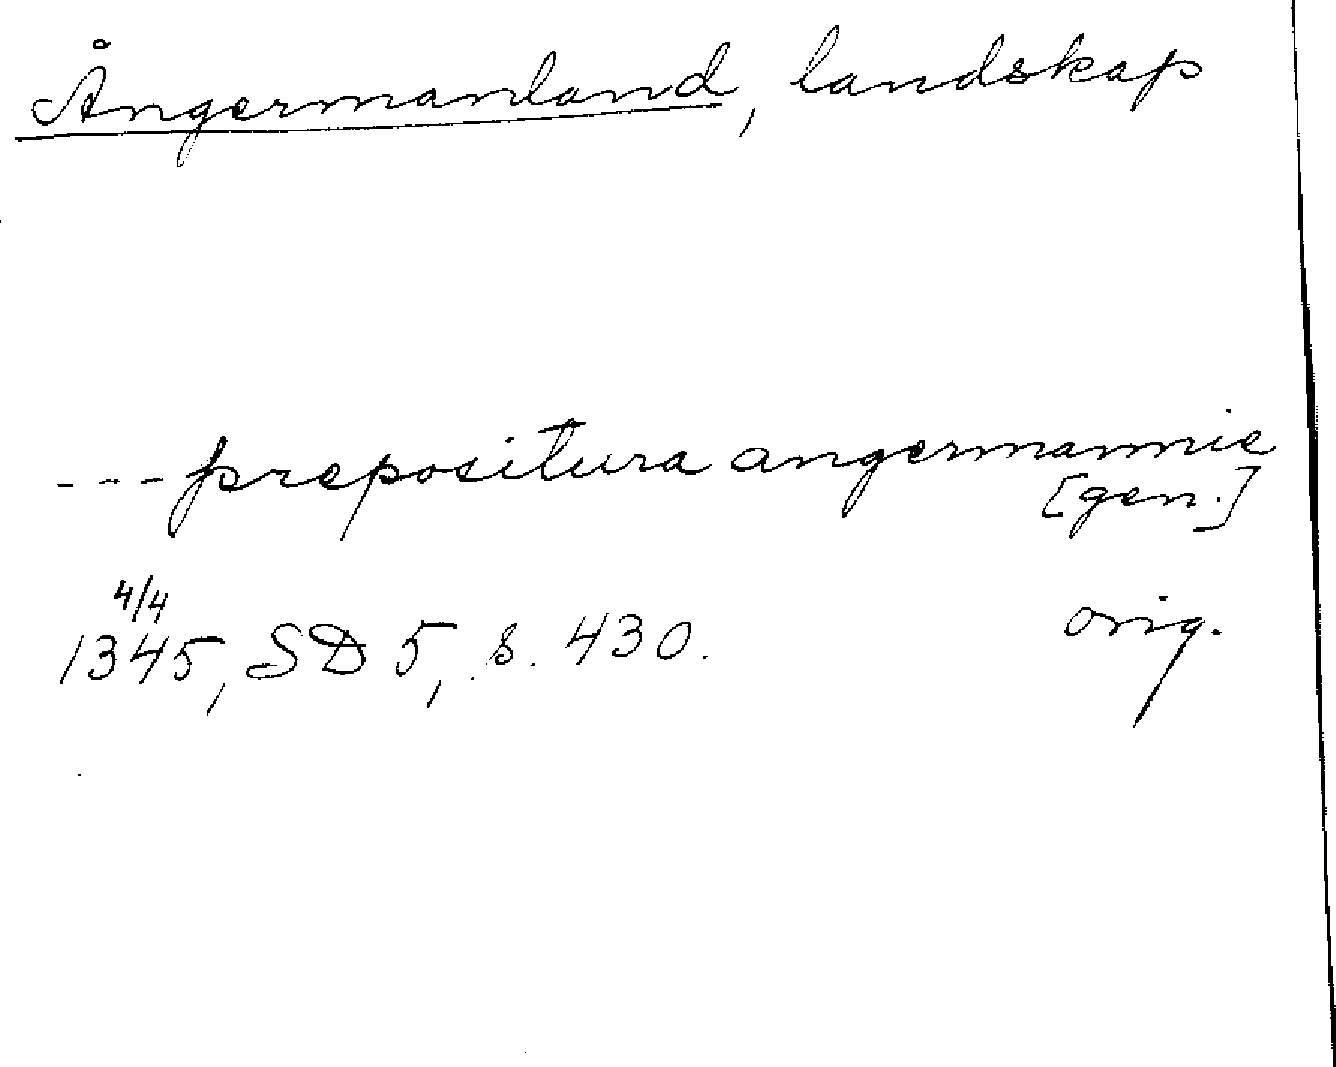 Ångermanland, landskap
--- prepositura angermannie
[gen.]
4/4
1345, SD 5, s. 430. orig.